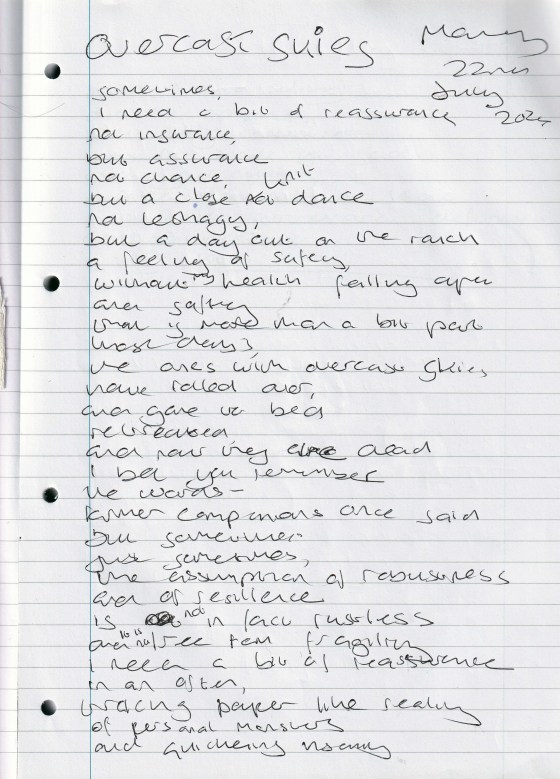 overcast skies
22nd
July
2024
sometimes,
I need a bit of reassurance
not insurance,
but assurance
not chance, knit
but a close dance
not
but a day out on the ranch
a feeling of safety,
without my health falling apart
and safety
that is more than a bit part
most days,
the ones with overcast skies
have rolled over,
and gave
and now they are dead
I bet you remember
the words -
former companions once said
but sometimes
just sometimes,
the assumption of robustness
and of resilience
is not in fact rustless
and fragility
I need a bit of reassurance
in an often,
tracing paper like reality
of personal monsters
and quickening